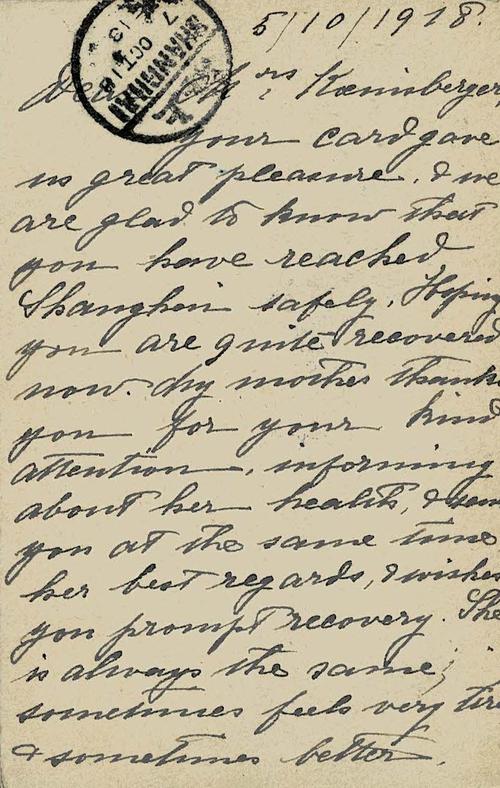 5/10/1918.
SHANGHAI
7 OCT 18
13
Dear Mrs Kœnisberger
your card gave
us great pleasure, & we
are glad to know that
you have reached
Shanghai safely. Hoping
you are quite recovered
now. My mother thanks
you for your kind
attention, informing
about her health, & sen
you at the same time
her best regards, & wishes
you prompt recovery. She
is always the same;
sometimes feels very tire
& sometimes better.